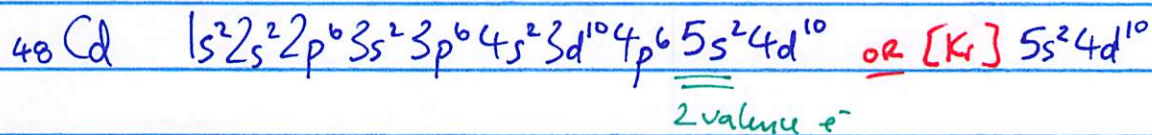 ₄₈Cd 1s²2s²2p⁶3s²3p⁶4s²3d¹⁰4p⁶5s²4d¹⁰ OR [Kr] 5s²4d¹⁰
2 valence e⁻